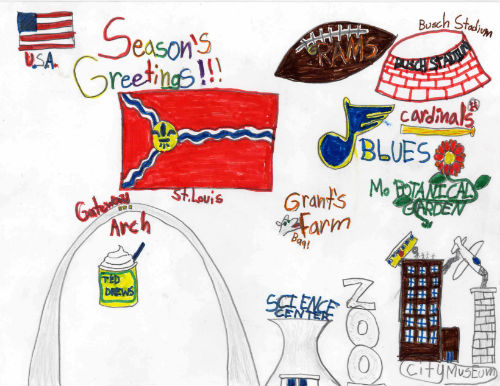 U.S.A.
Season's
Greetings!!!
RAMS
Busch Stadium
BUSCH STADIUM
cardinals
BLUES
St. Louis
Mo BOTANICAL
GARDEN
Grant's
Farm
Baa!
Gateway
Arch
TED
DREWS
SCIENCE
CENTER
ZOO
City Museum